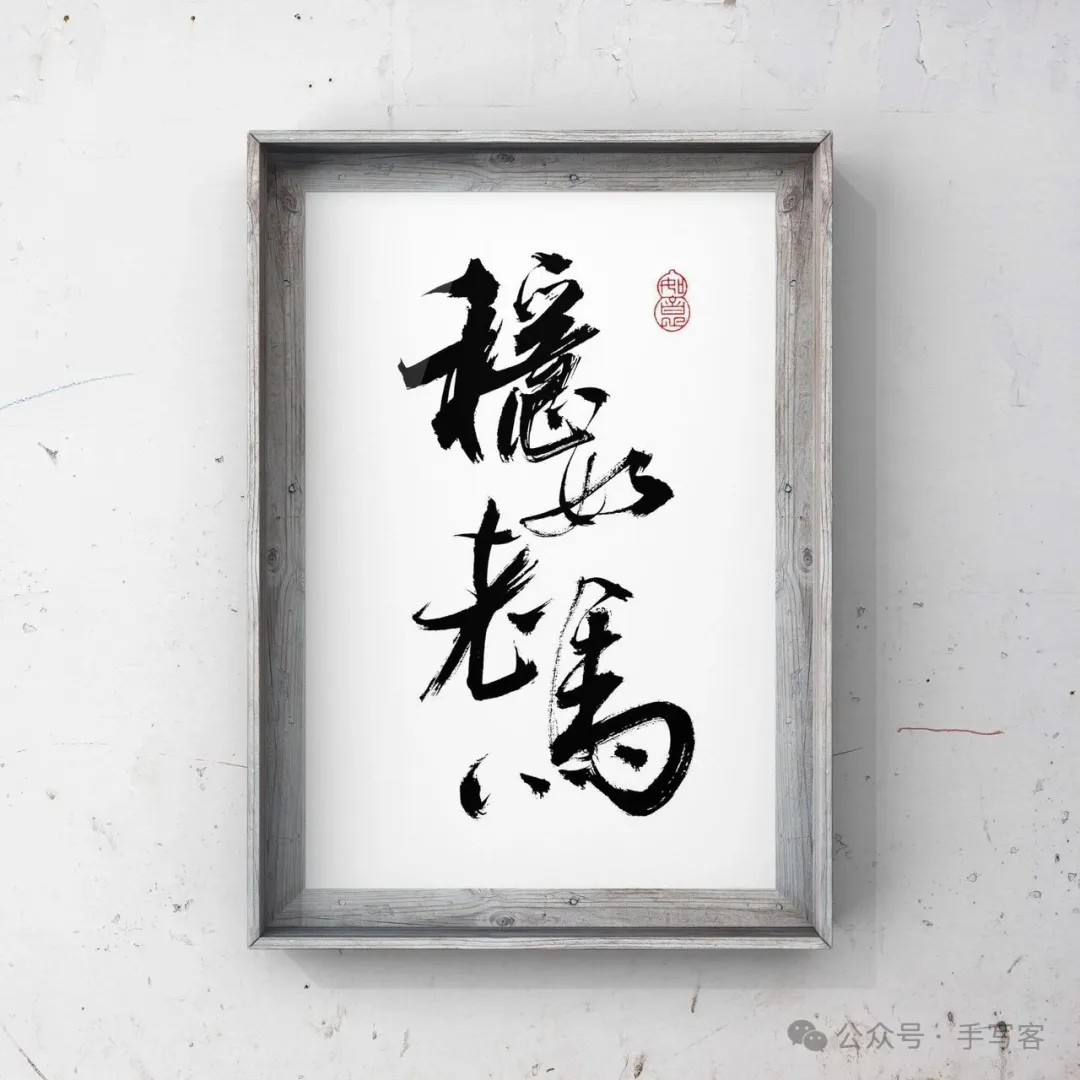 穩如
老馬
如意
公众号·手写客